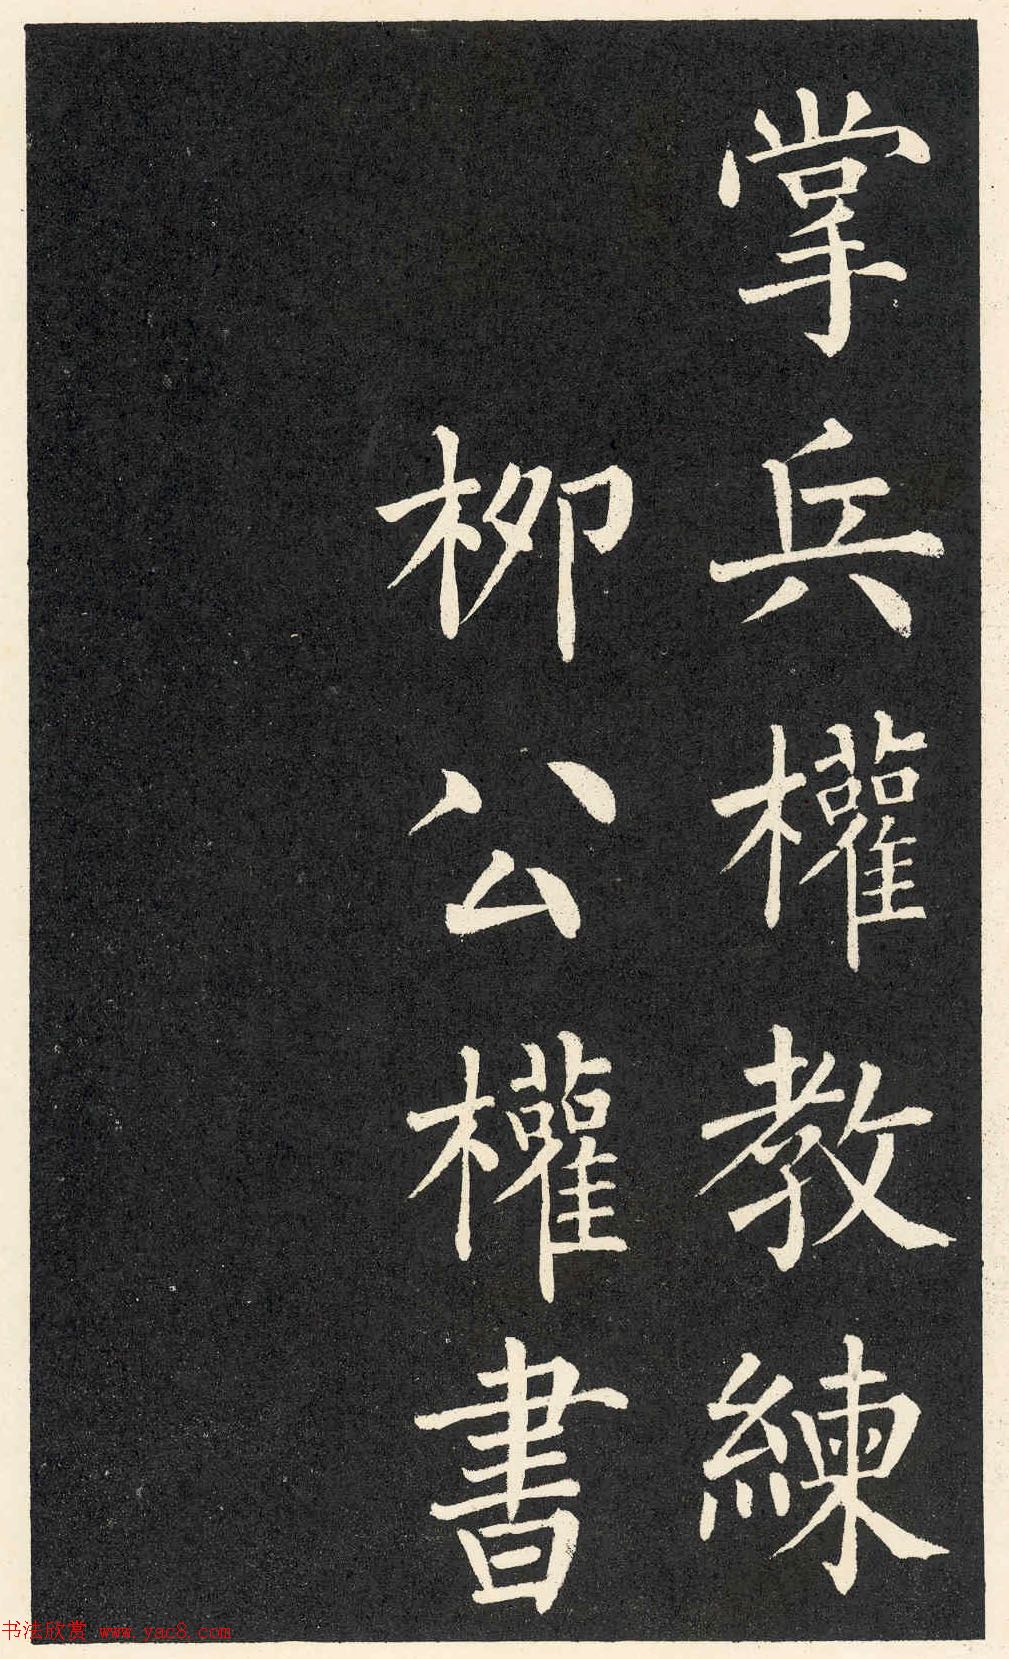 掌兵權教練
柳公權書
书法欣赏 www.yac8.com